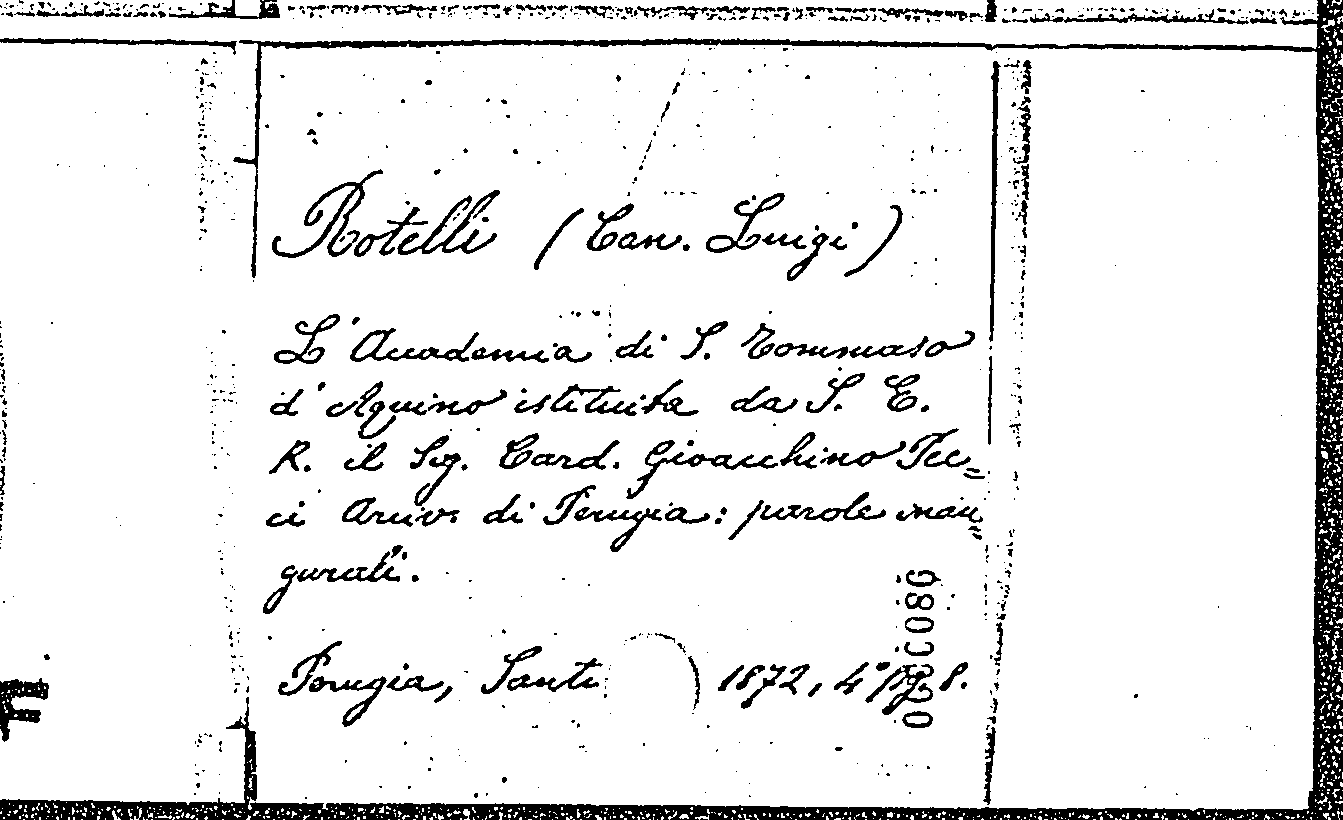 Rotelli (Can. Luigi)
L'Accademia di S. Tommaso
d'Aquino istituita da S. E.
R. il Sig. Card. Gioacchino Pec=
ci Arciv. di Perugia: parole inau=
gurali.
Perugia, Santi 1872, 4° pg. 8.